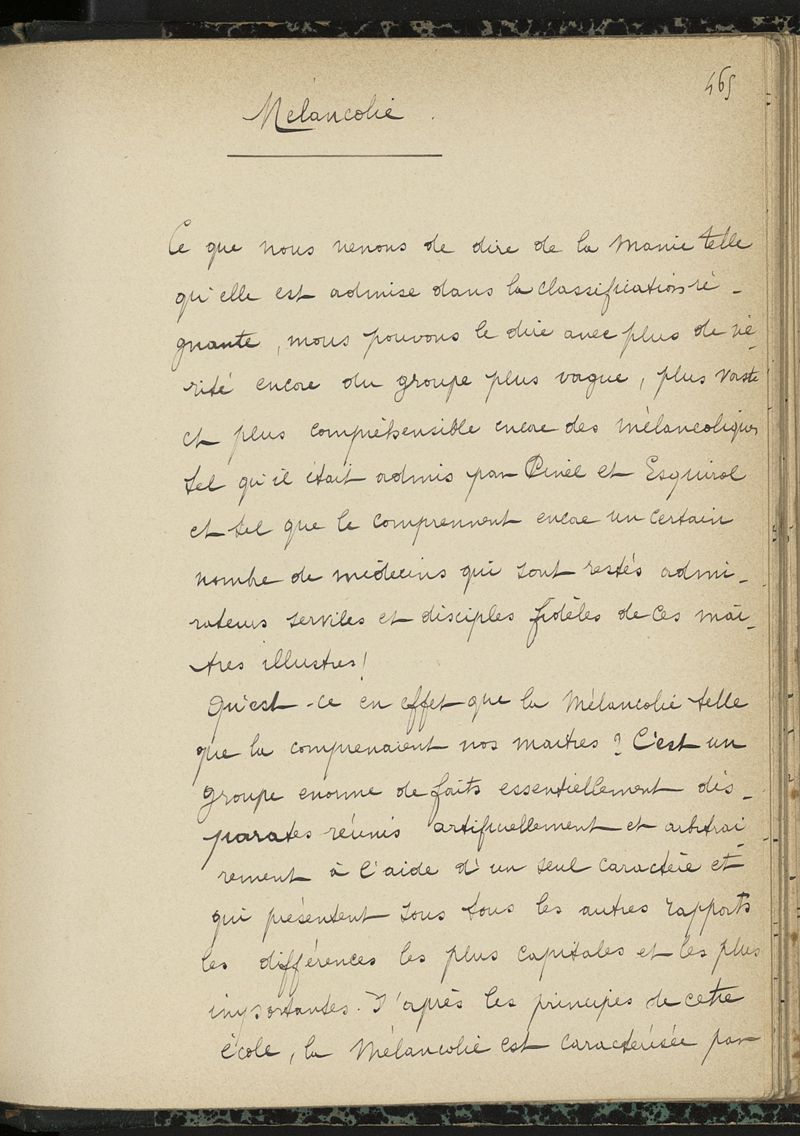 465
Mélancolie.
Ce que nous venons de dire de la Manie telle
qu'elle est admise dans la classification ré-
gnante, nous pouvons le dire avec plus de vé-
rité encore du groupe plus vague, plus vaste
et plus compréhensible encore des mélancoliques
tel qu'il était admis par Pinel et Esquirol
et tel que le comprennent encore un certain
nombre de médecins qui sont restés admi-
rateurs serviles et disciples fidèles de ces maî-
tres illustres!
Qu'est-ce en effet que la Mélancolie telle
que la comprenaient nos maitres? C'est un
groupe enorme de faits essentiellement dis-
parates réunis artificiellement et arbitrai
rement à l'aide d'un seul caractère et
qui présentent sous tous les autres rapports
les différences les plus capitales et les plus
importantes. D'après les principes de cette
école, la Mélancolie est caractérisée par